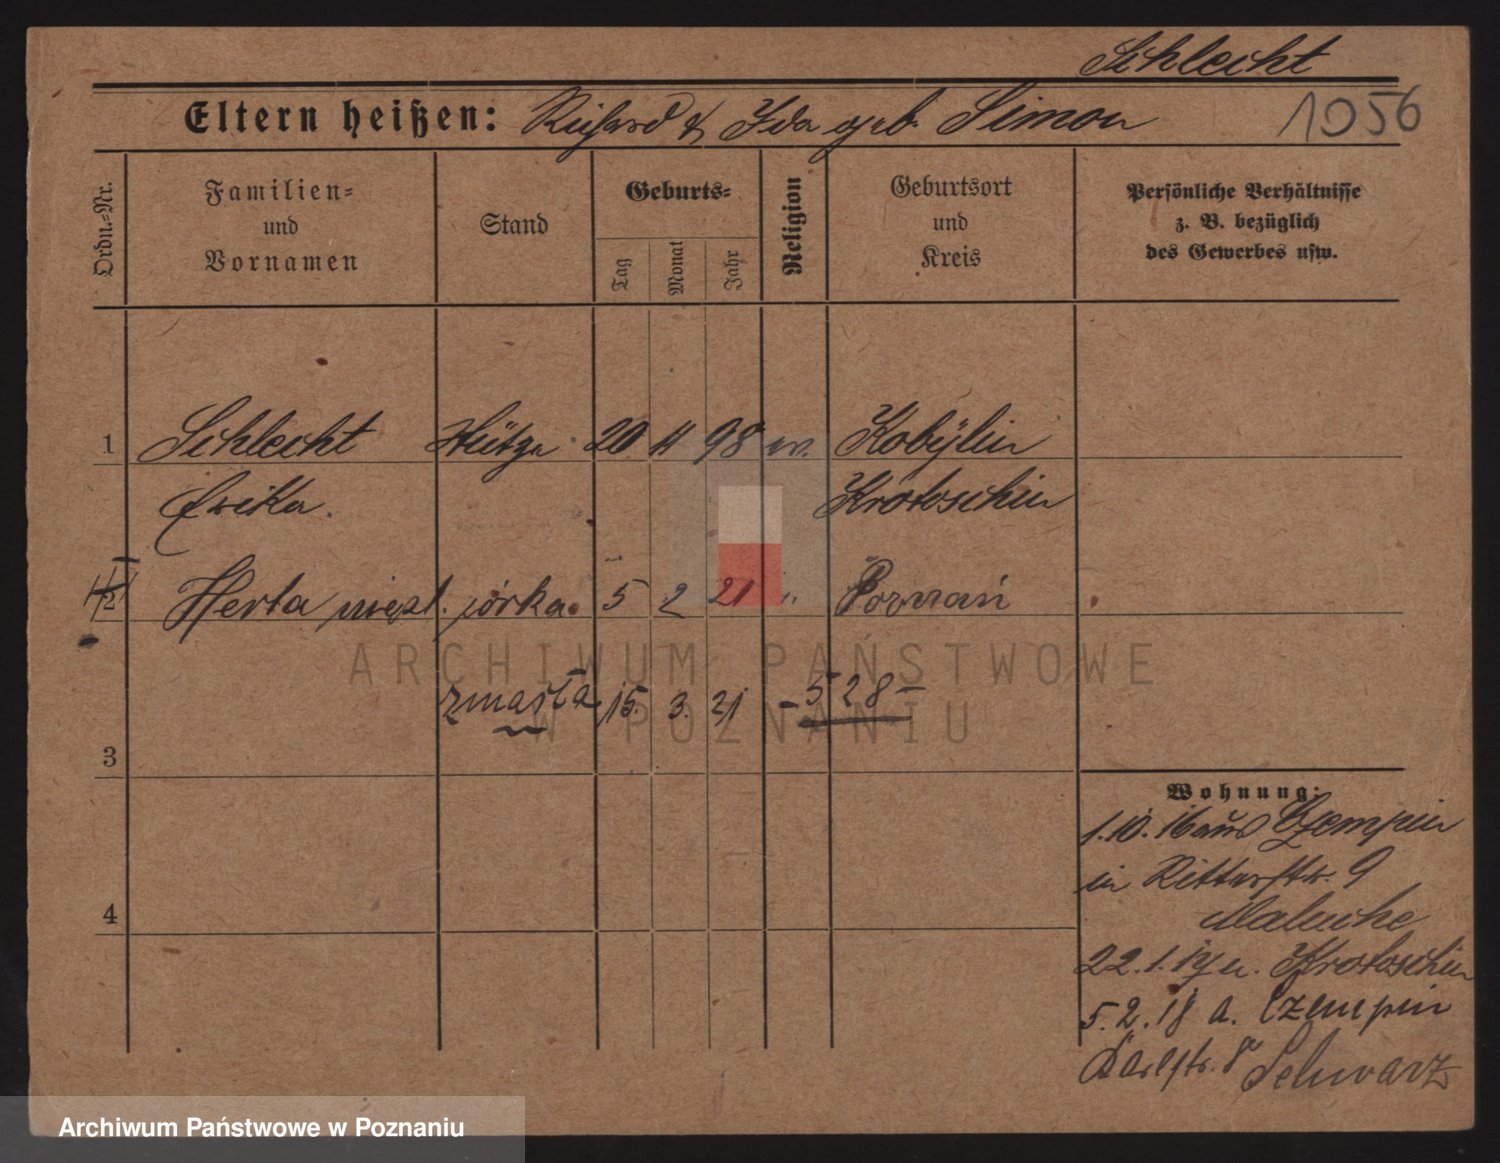 Schlecht
Eltern heißen: Richard & Ida geb. Simon 1056
Ordn.-Nr.
Familien-
und
Vornamen
Stand
Geburts-
Tag
Monat
Jahr
Religion
Geburtsort
und
Kreis
Persönliche Verhältnisse
z. B. bezüglich
des Gewerbes usw.
1 Schlecht Stütze 20 11 98 ev. Kobylin
Erika. Krotoschin
2 Herta niezl. córka 5 2 21 Poznań
zmarła 15. 3. 21 - 528 -
3
4
Wohnung:
1.10.16 aus Czempin
in Ritterstr. 9
22.1.17 n. Krotoschin
5.2.18 a. Czempin
Karlstr. 8 Schwarz
ARCHIWUM PAŃSTWOWE
W POZNANIU
Archiwum Państwowe w Poznaniu